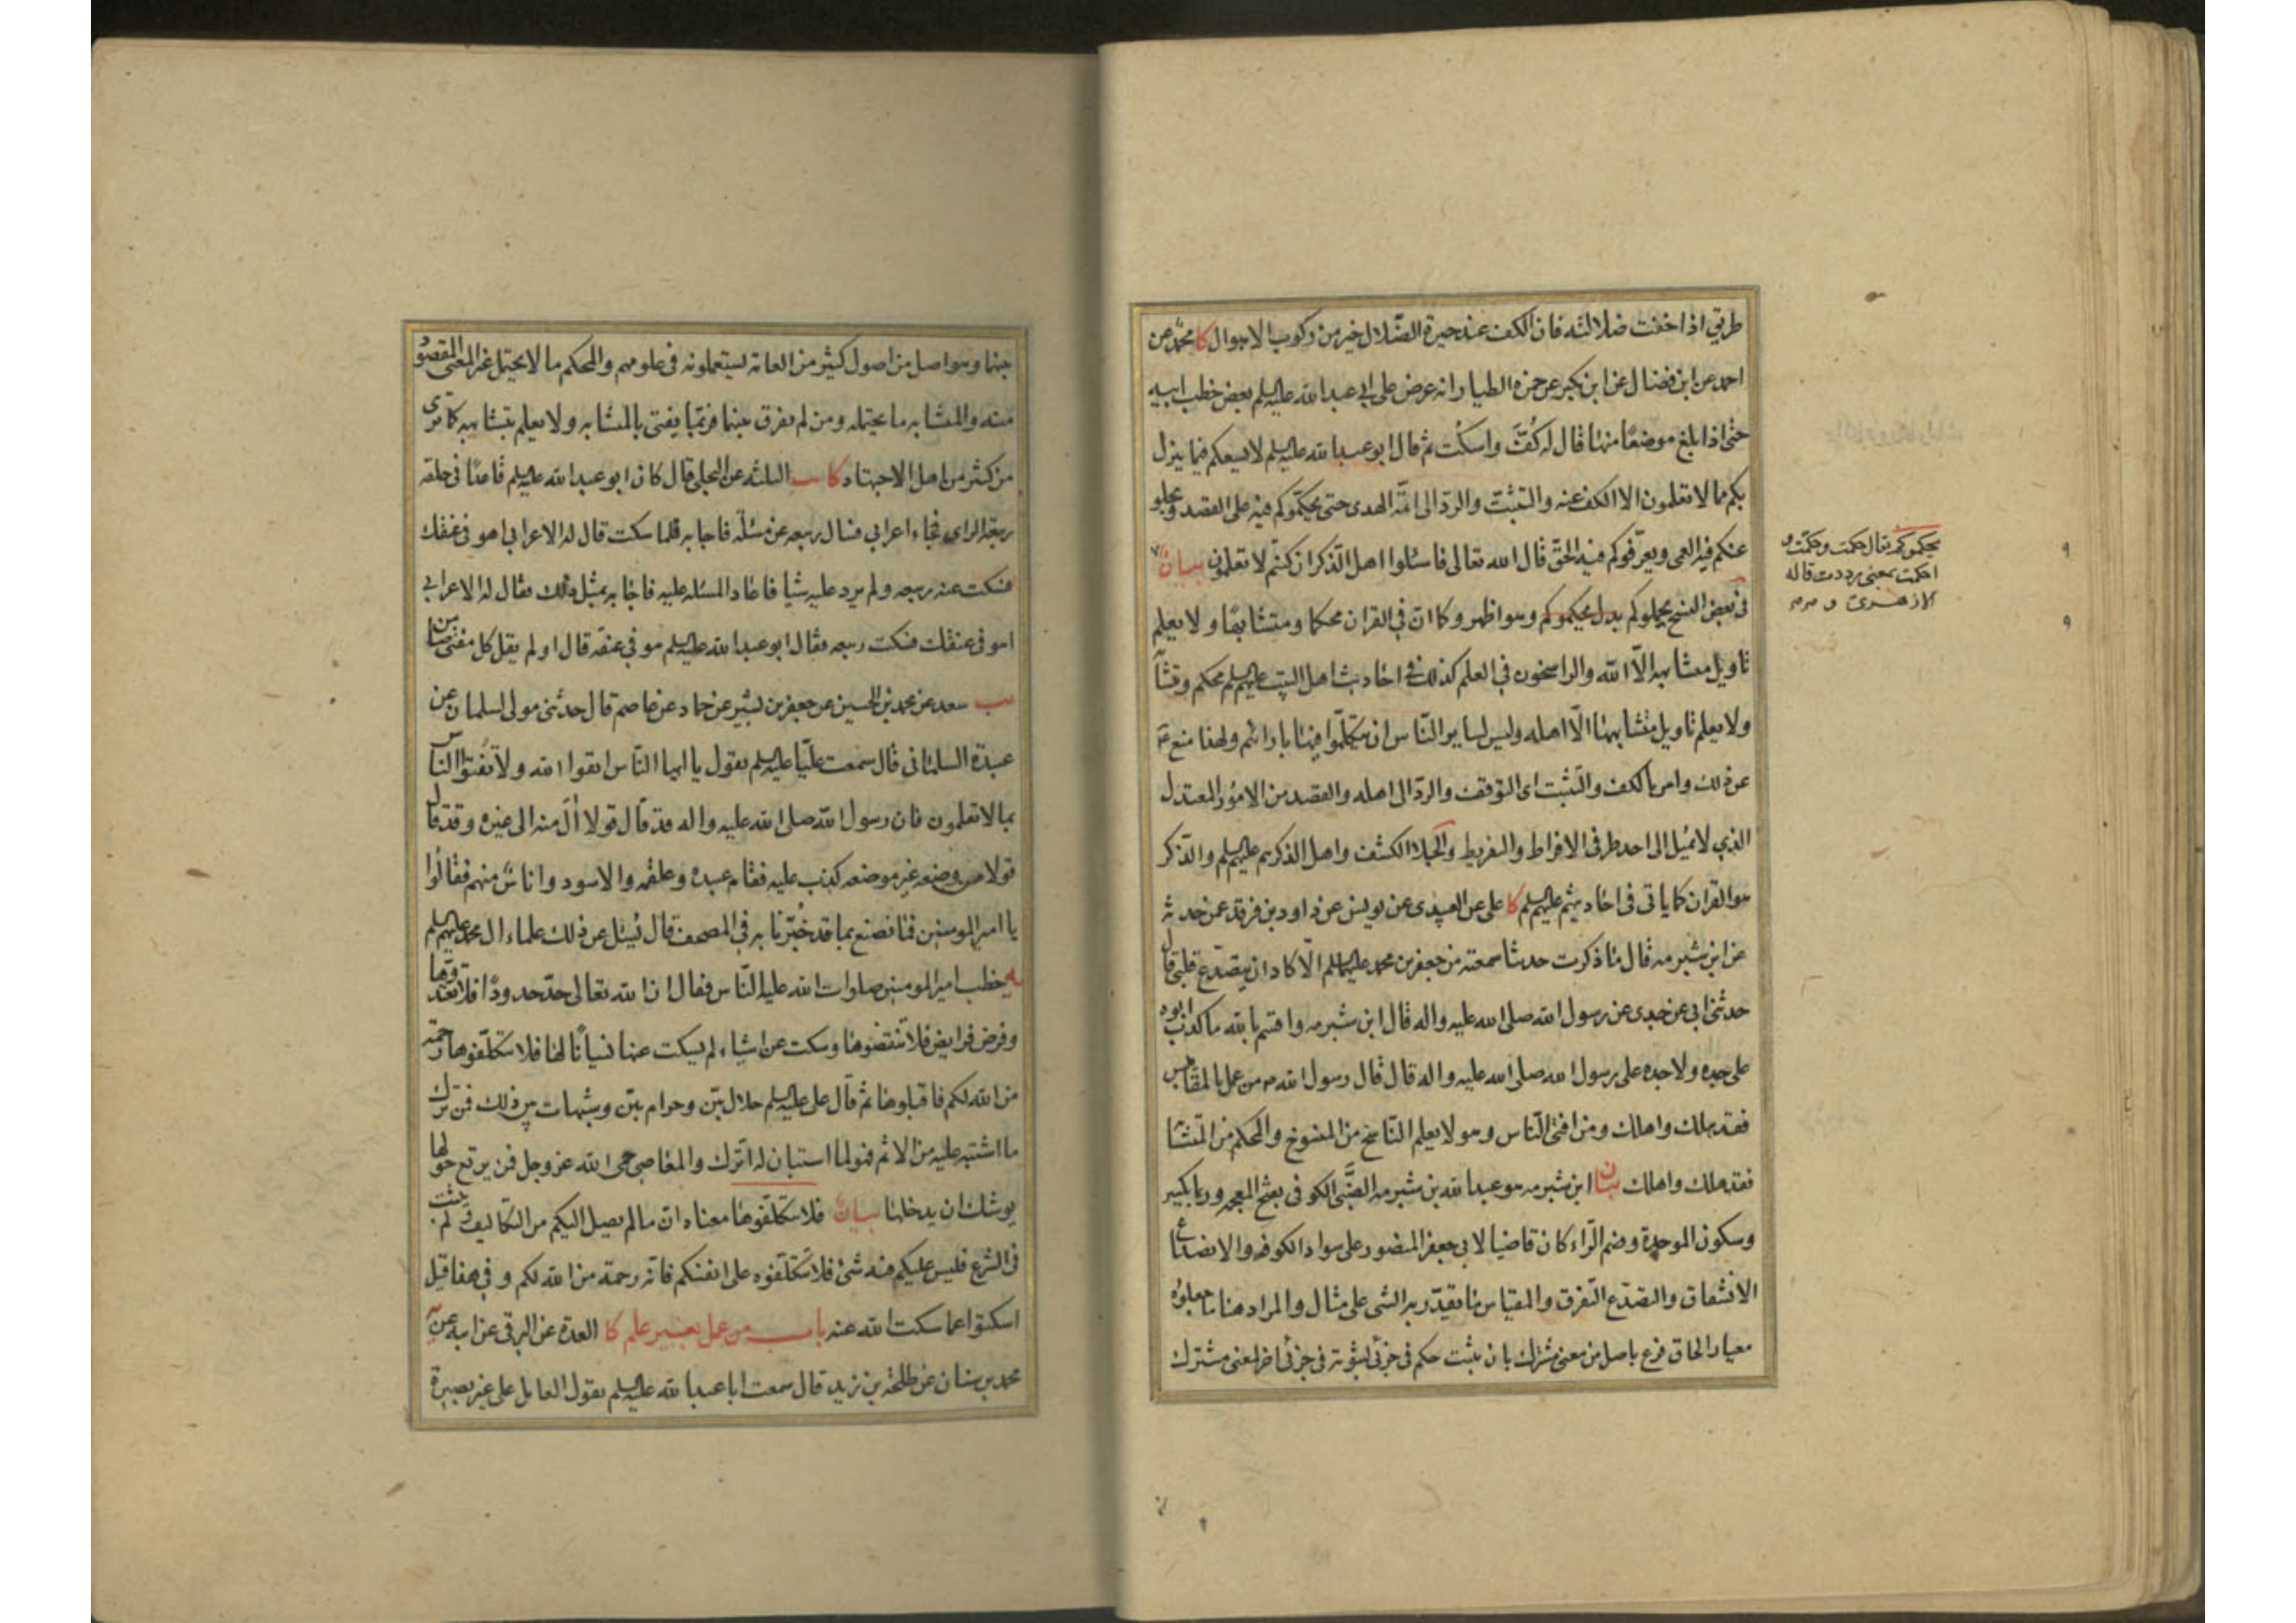 طريق اذا خفت ضلالته فان الكف عند حيرة الضلال خير من ركوب الاهوال كا محمد عن
احمد عن ابن فضال عن ابن بكير عن حمزه الطيار انه عرض على ابى عبد الله عليه السلم بعض خطب ابيه
حتى اذا بلغ موضعًا منها قال له كُفَّ واسكُت ثم قال ابو عبد الله عليه السلم لا يسعكم فيما ينزل
بكم مما لا تعلمون الا الكف عنه والتثبت والرد الى ائمة الهدى حتى يحكموكم فيه على القصد ويجلو
عنكم فيه العمى ويعرّفوكم فيه الحق قال الله تعالى فاسئلوا اهل الذكر ان كنتم لا تعلمون بيان
فى بعض النسخ يحلوكم بدل يحكموكم وهو اظهر وكما ان فى القران محكما ومتشابهًا ولا يعلم
تاويل متشابهه الّا الله والراسخون فى العلم كذلك فى احاديث اهل البيت عليهم السلم محكم ومتشابه
ولا يعلم تاويل متشابهها الّا اهله وليس لساير الناس ان يتكلّموا فيها بارائهم ولهذا منع عم
عن ذلك وامر بالكف والتثبت اى التوقف والرد الى اهله والقصد من الامور المعتدل
الذى لا يميل الى احد طرفى الافراط والتفريط والجلاء الكشف واهل الذكر هم عليهم السلم والذكر
هو القران كما ياتى فى احاديثهم عليهم السلم كا على عن العبيدى عن يونس عن داود بن فرقد عمن حدثه
عن ابن شبرمه قال ما ذكرت حديثا سمعته من جعفر بن محمد عليهما السلم الّا كاد ان يتصدع قلبى قال
حدثنى ابى عن جدى عن رسول الله صلى الله عليه واله قال ابن شبرمه واقسم بالله ما كذب ابوه
على جده ولا جده على رسول الله صلى الله عليه واله قال قال رسول الله ص من عمل بالمقاييس
فقد هلك واهلك ومن افتى الناس وهو لا يعلم الناسخ من المنسوخ والمحكم من المتشابه
فقد هلك واهلك بيان ابن شبرمه هو عبد الله بن شبرمه الضبّى الكوفى بفتح المعجمه وربما يكسر
وسكون الموحدة وضم الراء كان قاضيا لابى جعفر المنصور على سواد الكوفه والانصداع
الانشقاق والتصدع التفرق والمقياس ما يقدّر به الشى على مثال والمراد هنا ما جعلوه
معيار الحاق فرع باصل من معنى مشترك بان يثبت حكم فى جزئى لثبوته فى جزئى اخر لمعنى مشترك
يحكموكم يقال حكمت وحكّمت و
احكمت بمعنى رددت قاله
الازهرى
بينهما وهو اصل من اصول كثير من العامه يستعملونه فى علومهم والمحكم ما لا يحتمل غير المعنى المقصود
منه والمتشابه ما يحتمله ومن لم يفرق بينهما فربّما يفتى بالمتشابه ولا يعلم بتشابهه كما ترى
من كثير من اهل الاجتهاد كا يب الثلثه عن البجلى قال كان ابو عبد الله عليه السلم قاعدًا فى حلقه
ربيعة الراى فجاء اعرابى فسال ربيعه عن مسئلة فاجابه فلما سكت قال له الاعرابى اهو فى عنقك
فسكت عنه ربيعه ولم يرد عليه شيا فاعاد المسئله عليه فاجابه بمثل ذلك فقال له الاعرابى
اهو فى عنقك فسكت ربيعه فقال ابو عبد الله عليه السلم هو فى عنقه قال او لم يقل كل مفتى ضامن
يب سعد عن محمد بن الحسين عن جعفر بن بشير عن حماد عن عاصم قال حدثنى مولى لسلمان عن
عبيدة السلمانى قال سمعت عليّا عليه السلم يقول يا ايها النّاس اتقوا الله ولا تفتوا الناس
بما لا تعلمون فان رسول الله صلى الله عليه واله قد قال قولا اٰلَ منه الى غيره وقد قال
قولا من وضعه غير موضعه كذب عليه فقام عبيده وعلقمه والاسود واناس منهم فقالوا
يا امير المومنين فما نصنع بما قد خُبّرنا به فى المصحف قال يُسئل عن ذلك علماء ال محمد عليهم السلم
يه خطب امير المومنين صلوات الله عليه النّاس فقال ان الله تعالى حدّ حدودًا فلا تعتدوها
وفرض فرايض فلا تنقضوها وسكت عن اشياء لم يسكت عنها نسيانًا لها فلا تتكلفوها رحمة
من الله لكم فاقبلوها ثم قال على عليه السلم حلال بيّن وحرام بيّن وشبهات بين ذلك فمن ترك
ما اشتبه عليه من الاثم فهو لما استبان له اترك والمعاصى حمى الله عز وجل فمن يرتع حولها
يوشك ان يدخلها بيان فلا تتكلّفوها معناه ان ما لم يصل اليكم من التكاليف ولم يثبت
فى الشرع فليس عليكم فيه شئ فلا تتكلّفوه على انفسكم فانه رحمة من الله لكم وفى هذا قيل
اسكتوا عما سكت الله عنه باب من عمل بغير علم كا العدة عن البرقى عن ابيه عن
محمد بن سنان عن طلحة بن زيد قال سمعت ابا عبد الله عليه السلم يقول العامل على غير بصيرة